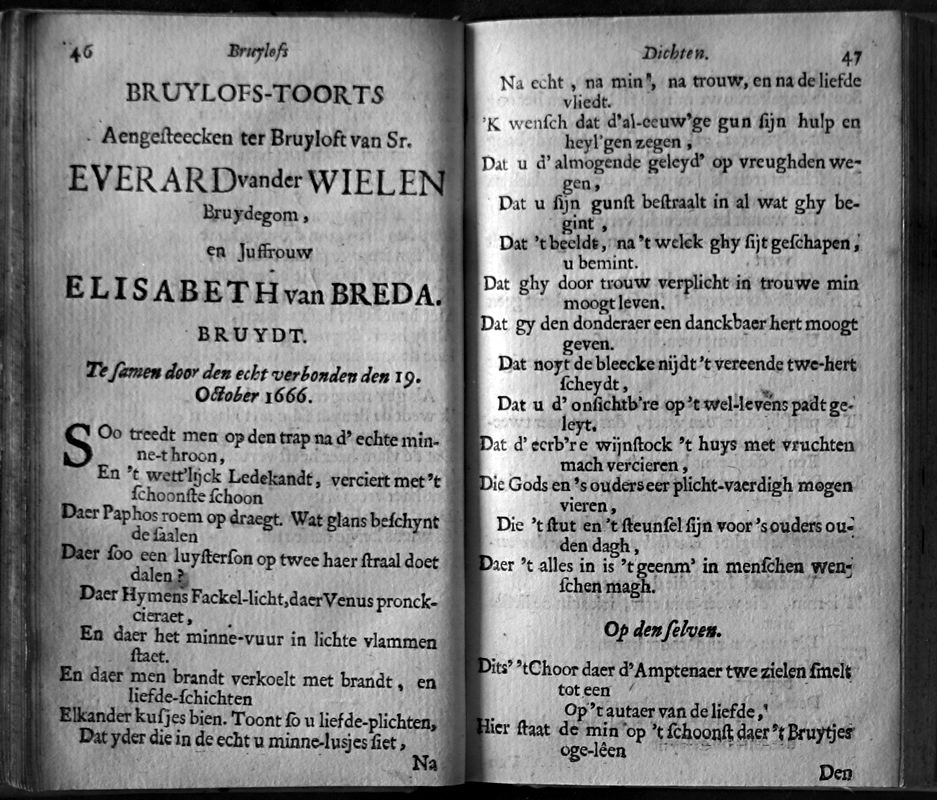 46
Bruylofs
BRUYLOFS-TOORTS
Aengeſteecken ter Bruyloft van Sr.
EVERARD vander WIELEN
Bruydegom,
en Juffrouw
ELISABETH van BREDA.
BRUYDT.
Te ſamen door den echt verbonden den 19.
October 1666.
SOo treedt men op den trap na d' echte min-
ne-t hroon,
En 't wett'lijck Ledekandt, verciert met 't
ſchoonſte ſchoon
Daer Paphos roem op draegt. Wat glans beſchynt
de ſaalen
Daer ſoo een luyſterſon op twee haer ſtraal doet
dalen?
Daer Hymens Fackel-licht, daer Venus pronck-
cieraet,
En daer het minne-vuur in lichte vlammen
ſtaet.
En daer men brandt verkoelt met brandt, en
liefde-ſchichten
Elkander kuſjes bien. Toont ſo u liefde-plichten,
Dat yder die in de echt u minne-lusjes ſiet,
Na
Dichten.
47
Na echt, na min", na trouw, en na de liefde
vliedt.
'K wenſch dat d'al-eeuw'ge gun ſijn hulp en
heyl'gen zegen,
Dat u d'almogende geleyd' op vreughden we-
gen,
Dat u ſijn gunſt beſtraalt in al wat ghy be-
gint,
Dat 't beeldt, na 't welck ghy ſijt geſchapen,
u bemint.
Dat ghy door trouw verplicht in trouwe min
moogt leven.
Dat gy den donderaer een danckbaer hert moogt
geven.
Dat noyt de bleecke nijdt 't vereende twe-hert
ſcheydt,
Dat u d' onſichtb're op 't wel-levens padt ge-
leyt.
Dat d' eerb're wijnſtock 't huys met vruchten
mach vercieren,
Die Gods en 's ouders eer plicht-vaerdigh mogen
vieren,
Die 't ſtut en 't ſteunſel ſijn voor 's ouders ou-
den dagh,
Daer 't alles in is 't geenm' in menſchen wen-
ſchen magh.
Op den ſelven.
Dits' 'tChoor daer d'Amptenaer twe zielen ſmelt
tot een
Op 't autaer van de liefde,
Hier ſtaat de min op 't ſchoonſt daer 't Bruytjes
oge-lêen
Den